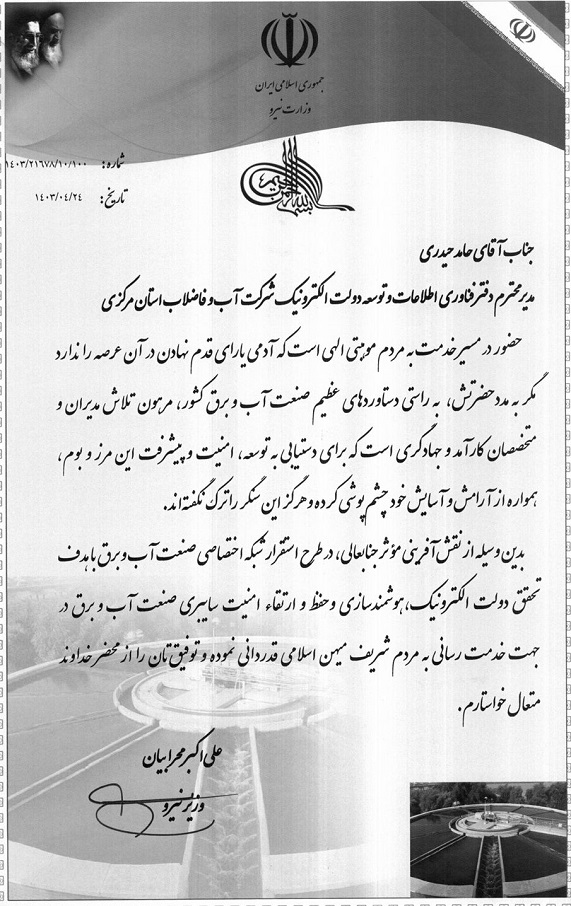 جمهوری اسلامی ایران
وزارت نیرو
بسم الله الرحمن الرحیم
شماره: ۱۴۰۳/۲۱۶۷۸/۱۰/۱۰۰
تاریخ: ۱۴۰۳/۰۴/۲۴
جناب آقای حامد حیدری
مدیر محترم دفتر فناوری اطلاعات و توسعه دولت الکترونیک شرکت آب و فاضلاب استان مرکزی
حضور در مسیر خدمت به مردم موهبتی الهی است که آدمی یارای قدم نهادن در آن عرصه را ندارد
مگر به مدد حضرتش، به راستی دستاوردهای عظیم صنعت آب و برق کشور، مرهون تلاش مدیران و
متخصصان کارآمد و جهادگری است که برای دستیابی به توسعه، امنیت و پیشرفت این مرز و بوم،
همواره از آرامش و آسایش خود چشم پوشی کرده و هرگز این سنگر را ترک نگفته‌اند.
بدین وسیله از نقش آفرینی مؤثر جنابعالی، در طرح استقرار شبکه اختصاصی صنعت آب و برق با هدف
تحقق دولت الکترونیک، هوشمندسازی و حفظ و ارتقاء امنیت سایبری صنعت آب و برق در
جهت خدمت رسانی به مردم شریف میهن اسلامی قدردانی نموده و توفیق‌تان را از محضر خداوند
متعال خواستارم.
علی اکبر محرابیان
وزیر نیرو